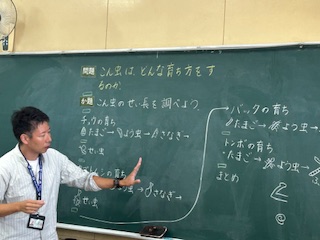 問題 こん虫は、どんな育ち方をするのか。
小題 こん虫のせい長を調べよう
チョウの育ち
たまご→よう虫→さなぎ→
せい虫
の育ち
虫→さなぎ→
せい虫
バッタの育ち
たまご→よう虫→
トンボの育ち
たまご→よう虫→
まとめ